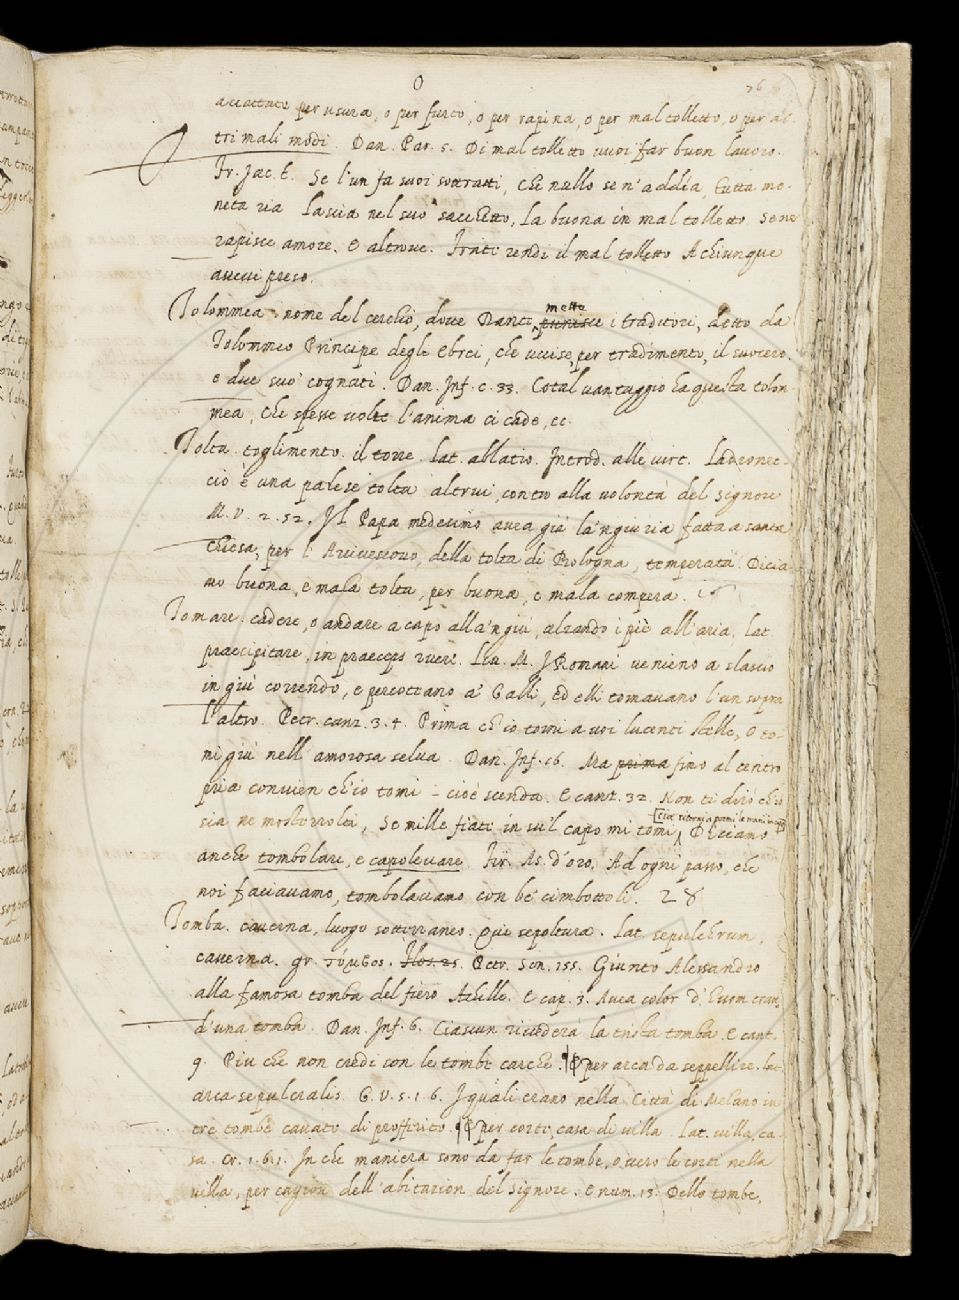 O
76
accattate per usura, o per furto, o per rapina, o per mal tolletto, o per al-
tri mali modi. Dan. Par. 5. Di mal tolletto vuoi far buon lavoro.
Fr. Jac. T. Se l'un fa suoi sottratti, che nullo se n'addia, tutta mo-
neta ria Lascia nel suo sacchetto, La buona in mal tolletto Se ne
rapisce amore. E altrove. Frati rendi il mal tolletto A chiunque
avevi preso.
Tolommea. nome del cerchio, dove Dante, mette punisce i traditori, detto da
Tolommeo Principe degli Ebrei, che uccise, per tradimento, il suocero,
e due suo' cognati. Dan. Inf. c. 33. Cotal vantaggio ha questa tolom
mea, Che spesse volte l'anima ci cade, ec.
Tolta. toglimento. il torre. Lat. ablatio. Introd. alle virt. Ladronec-
cio è una palese tolta altrui, contro alla volontà del signore
M. V. 2. 52. Il Papa medesimo avea già la 'ngiuria fatta a santa
chiesa, per l'Arcivescovo, della tolta di Bologna, temperata. Dicia
mo buona, e mala tolta, per buona, e mala compera.
Tomare. cadere, o andare a capo all'a 'ngiù, alzando i piè all'aria. Lat.
praecipitare, in praeceps ruere. Liv. M. I Romani venieno a slascio
in giù correndo, e percotevano a' Galli, ed elli tomavano l'un sopra
l'altro. Petr. canz. 3. 4. Prima ch'io torni a voi lucenti stelle, O to-
mi giù nell'amorosa selva. Dan. Inf. 16. Ma prima fino al centro
pria convien ch'io tomi - cioè scenda. E cant. 32. Non ti dirò ch'io
sia nè mosterrolti, Se mille fiate in sul capo mi tomi, Diciamo
anche tombolare, e capolevare. Fir. As. d'oro. Ad ogni passo, che
noi faciavamo, tombolavamo con be' cimbottoli. 28
Tomba. caverna, luogo sotterraneo. Qui sepoltura. Lat. sepulchrum,
caverna. gr. τύμβος. Petr. Son. 155. Giunto Alessandro
alla famosa tomba del fiero Achille. E cap. 3. Avea color d'huom tratto
d'una tomba. Dan. Inf. 6. Ciascun rivederà la trista tomba. E cant.
9. Più che non credi son le tombe carche. ¶ per arca da seppellire. Lat.
arca sepulcralis. G. V. 5. 1. 6. I quali erano nella Città di Melano in
tre tombe cavate di proffirito. ¶ per corte, casa di villa. Lat. villa, ca-
sa. Cr. 1. 6. 1. In che maniera sono da far le tombe, o vero le corti nella
villa, per cagion dell'abitazion del signore. E num. 13. Delle tombe,